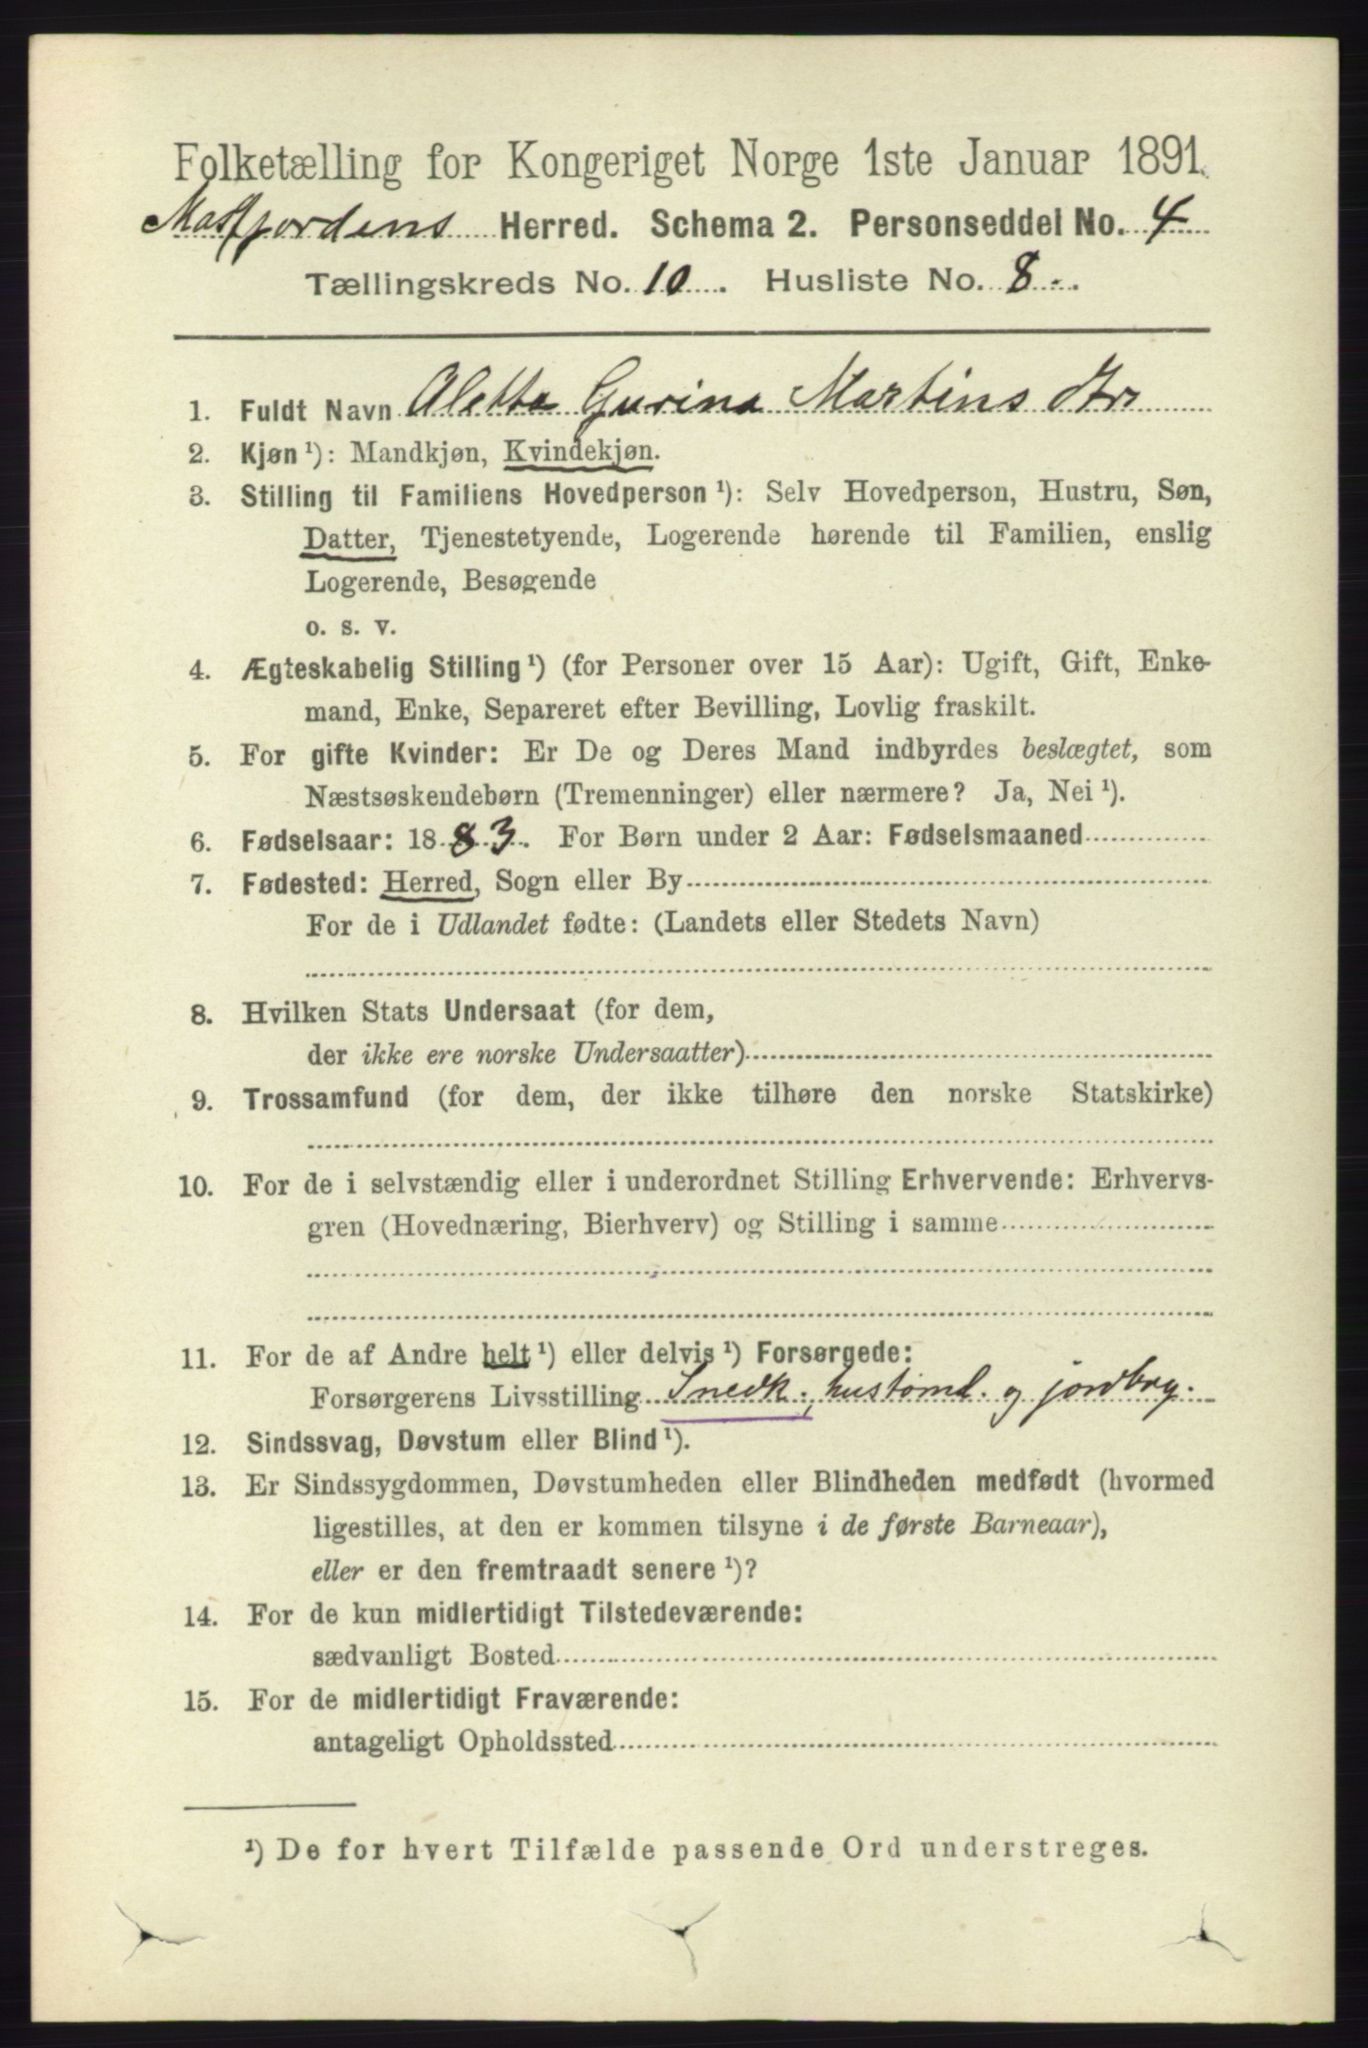 Folketælling for Kongeriget Norge 1ste Januar 1891.
Masfjordens Herred. Schema 2. Personseddel No. 4
Tællingskreds No. 10. Husliste No. 8.
1. Fuldt Navn Aletta Gurina Martins Dtr
2. Kjøn ¹): Mandkjøn, Kvindekjøn.
3. Stilling til Familiens Hovedperson ¹): Selv Hovedperson, Hustru, Søn,
Datter, Tjenestetyende, Logerende hørende til Familien, enslig
Logerende, Besøgende
o. s. v.
4. Ægteskabelig Stilling ¹) (for Personer over 15 Aar): Ugift, Gift, Enke-
mand, Enke, Separeret efter Bevilling, Lovlig fraskilt.
5. For gifte Kvinder: Er De og Deres Mand indbyrdes beslægtet, som
Næstsøskendebørn (Tremenninger) eller nærmere? Ja, Nei ¹).
6. Fødselsaar: 1883. For Børn under 2 Aar: Fødselsmaaned
7. Fødested: Herred, Sogn eller By
For de i Udlandet fødte: (Landets eller Stedets Navn)
8. Hvilken Stats Undersaat (for dem,
der ikke ere norske Undersaatter)
9. Trossamfund (for dem, der ikke tilhøre den norske Statskirke)
10. For de i selvstændig eller i underordnet Stilling Erhvervende: Erhvervs-
gren (Hovednæring, Bierhverv) og Stilling i samme
11. For de af Andre helt ¹) eller delvis ¹) Forsørgede:
Forsørgerens Livsstilling Snedk., hustøml. og jordbrg.
12. Sindssvag, Døvstum eller Blind ¹).
13. Er Sindssygdommen, Døvstumheden eller Blindheden medfødt (hvormed
ligestilles, at den er kommen tilsyne i de første Barneaar),
eller er den fremtraadt senere ¹)?
14. For de kun midlertidigt Tilstedeværende:
sædvanligt Bosted
15. For de midlertidigt Fraværende:
antageligt Opholdssted
¹) De for hvert Tilfælde passende Ord understreges.